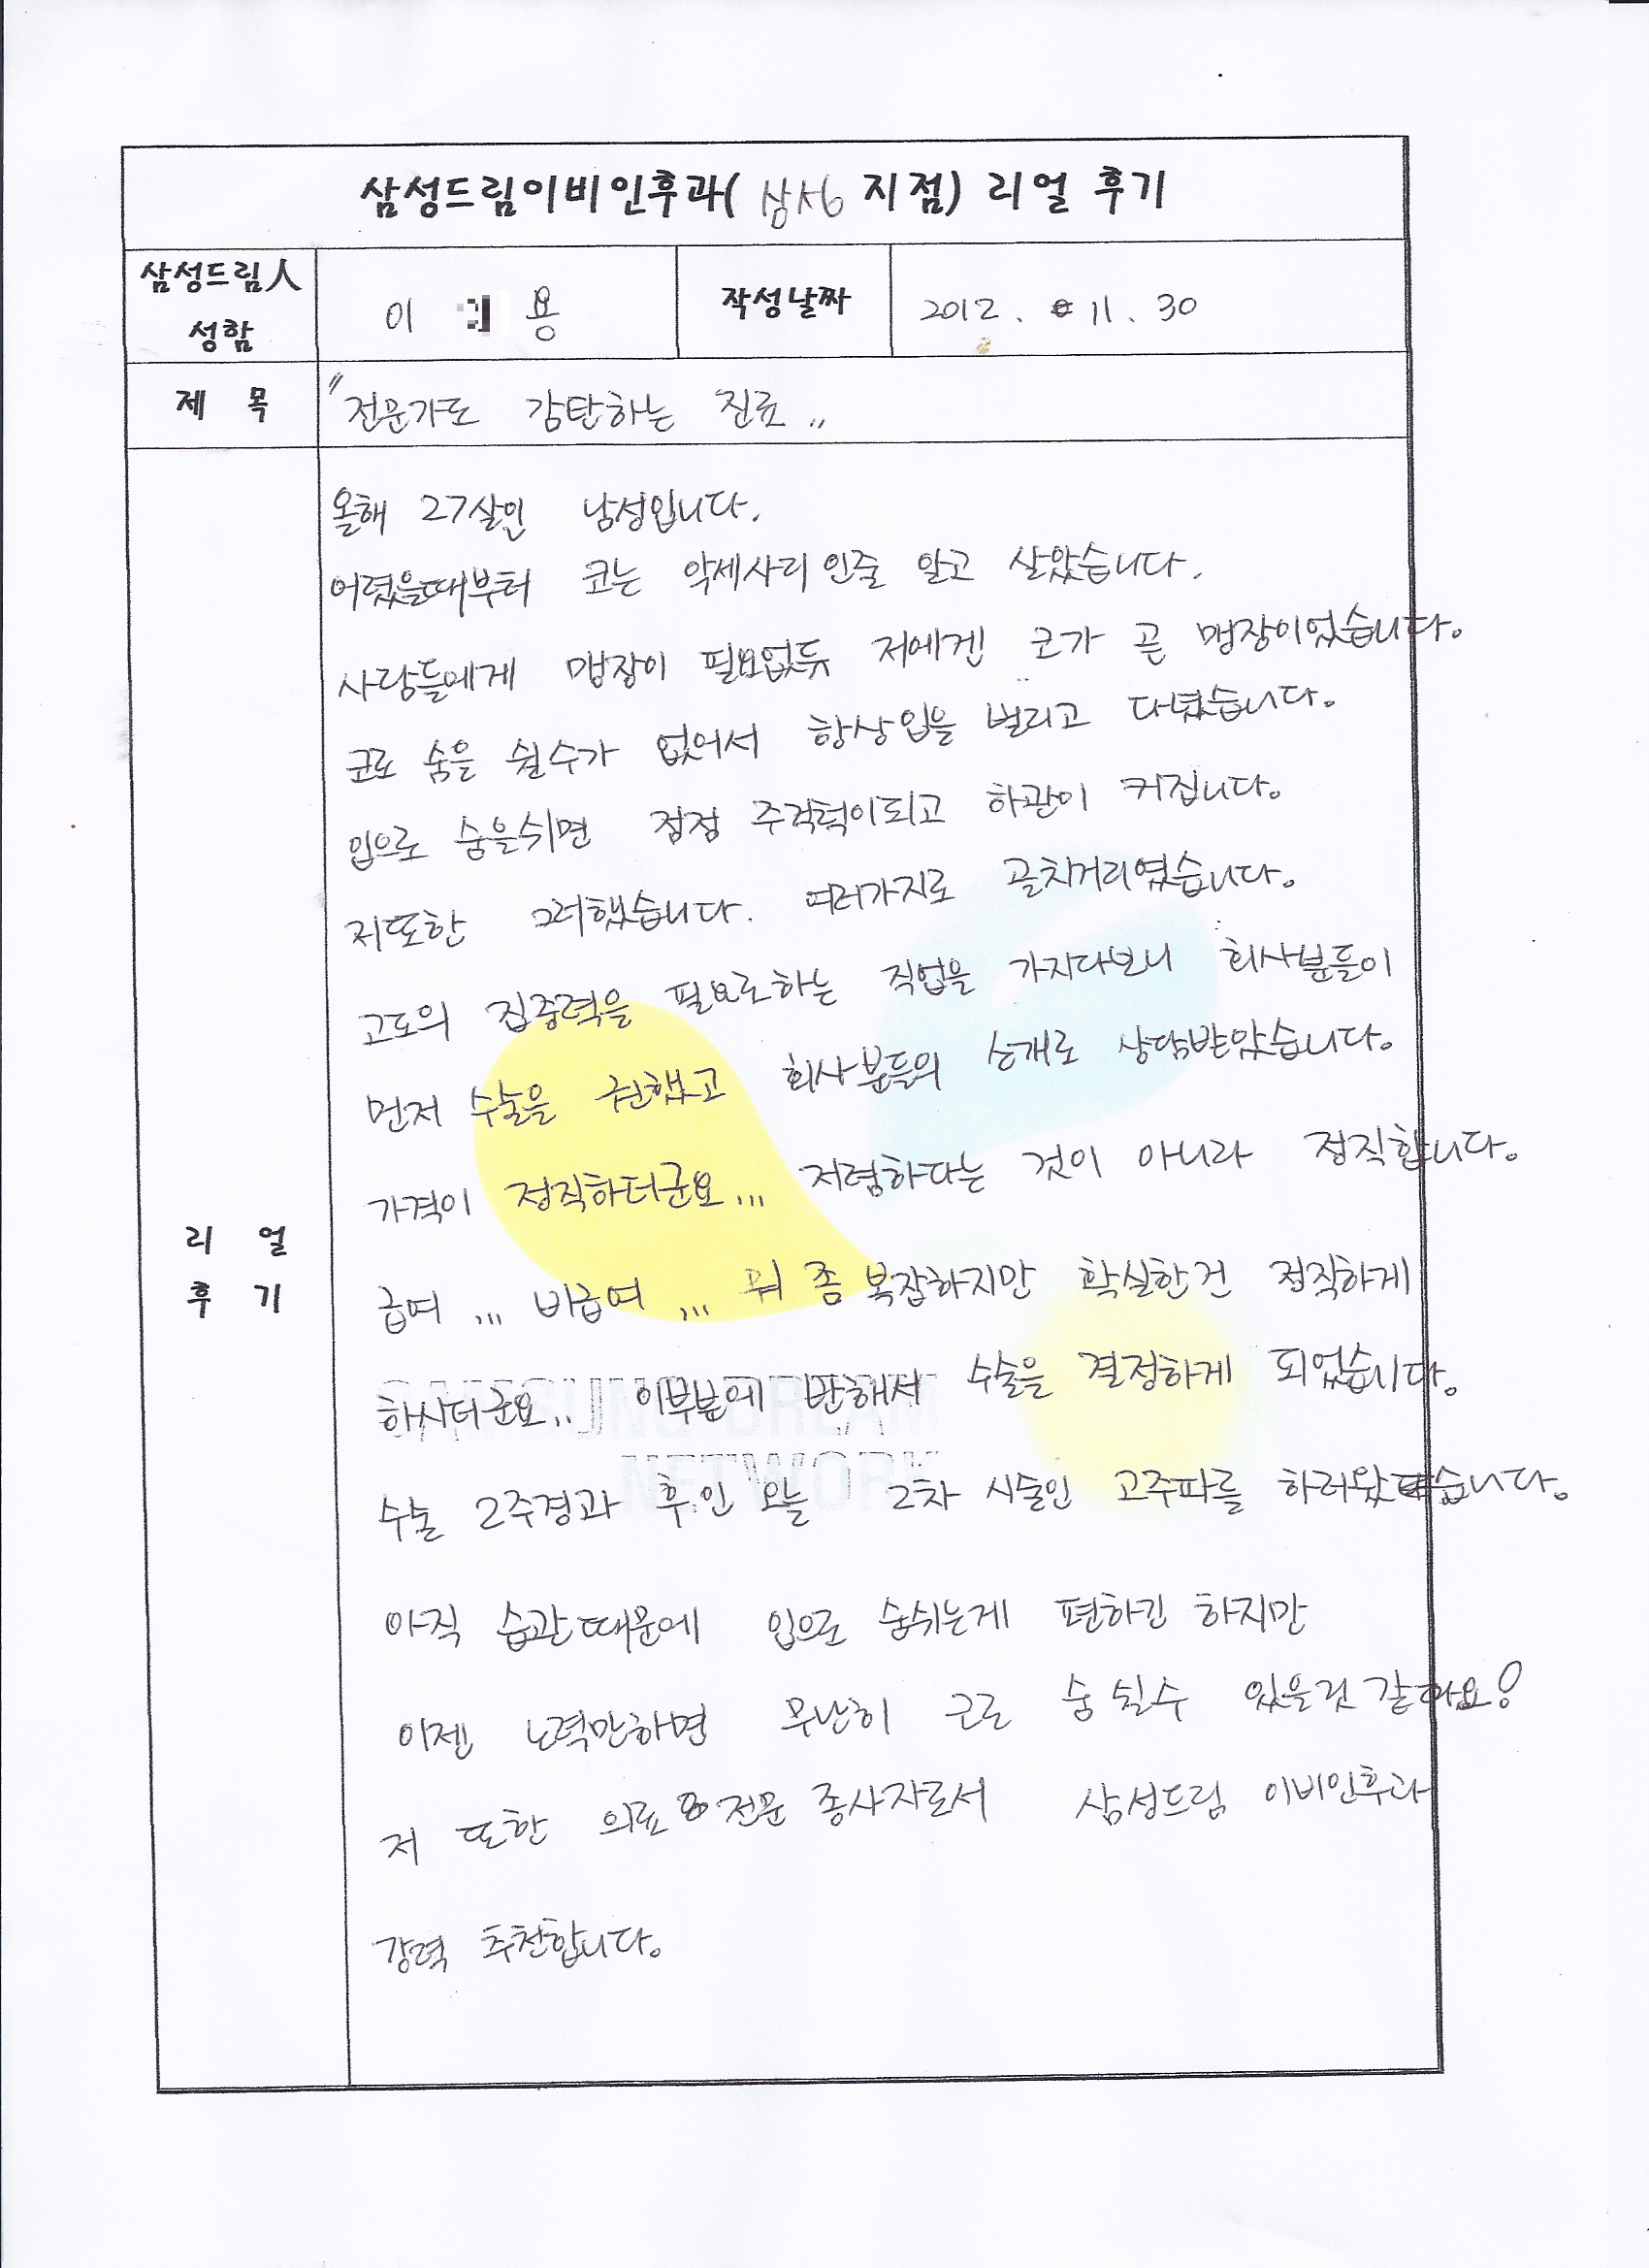 삼성드림이비인후과( 삼성 지점) 리얼 후기
삼성드림人
성함
이 용
작성날짜
2012. 11. 30
제 목
"전문가도 감탄하는 진료"
올해 27살인 남성입니다.
어렸을때부터 코는 악세사리인줄 알고 살았습니다.
사람들에게 맹장이 필요없듯 저에겐 코가 곧 맹장이었습니다.
코로 숨을 쉴수가 없어서 항상입을 벌리고 다녔습니다.
입으로 숨을쉬면 점점 주걱턱이되고 하관이 커집니다.
저또한 그러했습니다. 여러가지로 골치거리였습니다.
고도의 집중력을 필요로하는 직업을 가지다보니 회사분들이
먼저 수술을 권했고 회사분들의 소개로 상담받았습니다.
가격이 정직하더군요... 저렴하다는 것이 아니라 정직합니다.
급여... 비급여... 뭐 좀 복잡하지만 확실한건 정직하게
하시더군요.. 이부분에 반해서 수술을 결정하게 되었습니다.
수술 2주경과 후인 오늘 2차 시술인 고주파를 하러왔습니다.
아직 습관때문에 입으로 숨쉬는게 편하긴 하지만
이젠 노력만하면 무난히 코로 숨 쉴수 있을것 같아요!
저 또한 의료 전문 종사자로서 삼성드림 이비인후과
강력 추천합니다.
리 얼
후 기
SAMSUNG DREAM
NETWORK